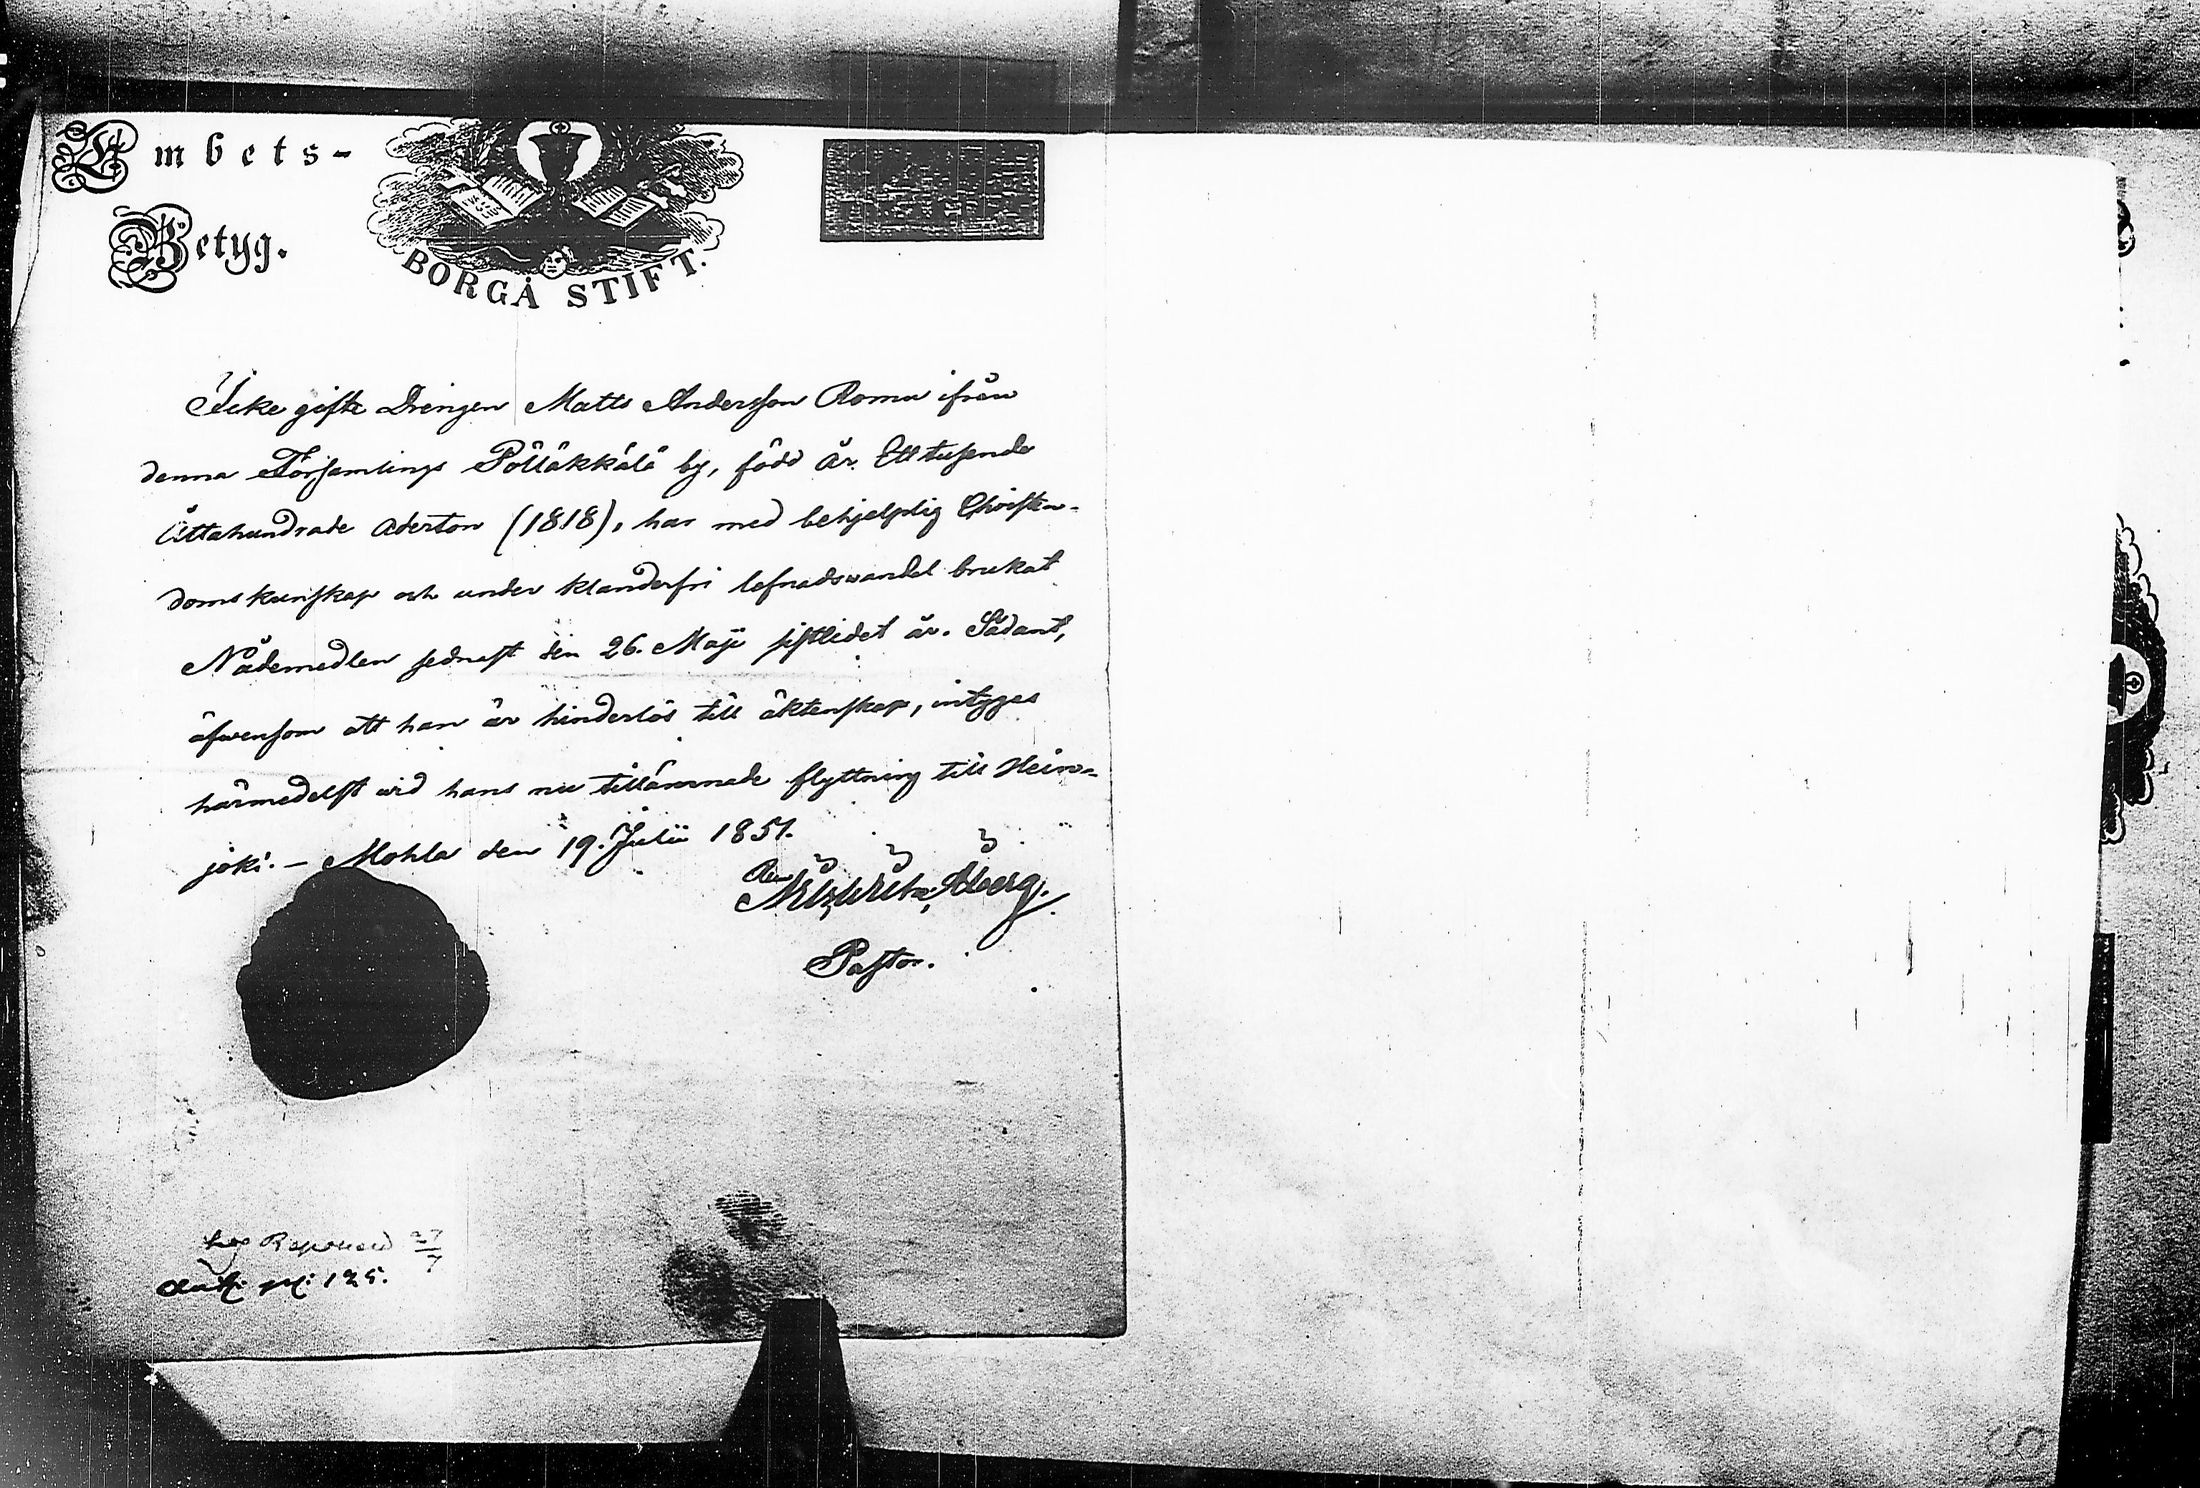 Embets-
Betyg.
BORGÅ STIFT.
Icke gifte Drengen Matts Andersson Romu ifrån
denna Församlings Pölläkkälä by, född År Ett tusende
Åttahundrade Aderton (1818), har med behjelplig Christen-
domskunskap och under klanderfri lefnadswandel brukat
Nådemedlen sednast den 26. Maji sistlidet år. Sådant,
äfwensom att han är hinderlös till äktenskap, intygas
härmedelst wid hans nu tillämnade flyttning till Hein-
joki. - Mohla den 19. Julii 1851.
Åberg.
Pastor.
27
7
125.